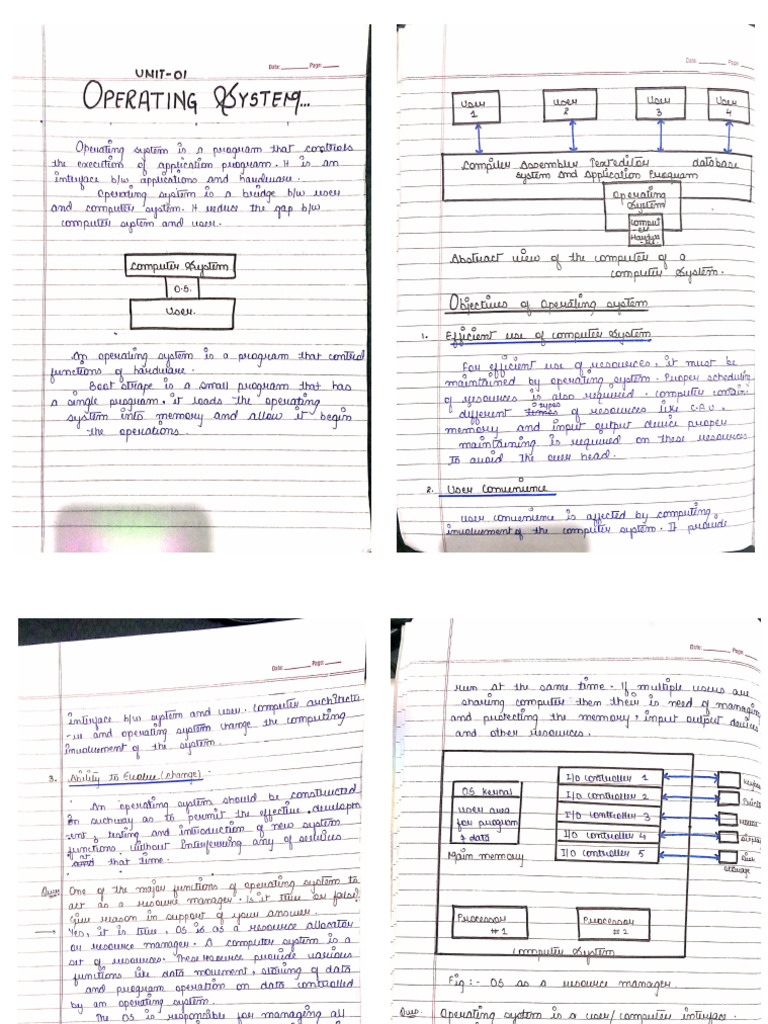 Date: Page:
UNIT-01
OPERATING SYSTEM...
Operating system is a program that controls
the execution of application program. It is an
interface b/w applications and hardware.
Operating system is a bridge b/w user
and computer system. It reduce the gap b/w
computer system and user.
Computer System
O.S.
User.
An operating system is a program that control
functions of hardware.
Boot strape is a small program that has
a single program, it loads the operating
system into memory and allow it begin
the operations.
Date: Page:
User 1
User 2
User 3
User 4
Compiler Assembler Text editor database
System and Application Program
Operating
System
Comput
-er
Hardwa
-re
Abstract view of the computer of a
computer System.
Objectives of Operating system
1. Efficient use of computer System
For efficient use of resources, it must be
maintained by operating system. Proper scheduling
of resources is also required. Computer contain
different times types of resources like C.P.U,
memory and input output device proper
maintaining is required on these resources
to avoid the over head.
2. User Convenience
User convenience is affected by computing
involvement of the computer system. It provide
Date: Page:
interface b/w system and user. Computer architectu
-re and operating system change the computing
involvement of the system.
3. Ability to Evolve (change)
An operating system should be constructed
in suchway as to permit the effective, developm
-ent, testing and introduction of new system
functions without interferring any of services
at that time.
Ques: One of the major functions of operating system to
act as a resource manager. Is it true or false?
Give reason in support of your answer.
Yes, it is true, OS is as a resource allocator
or resource manager. A computer system is a
set of resources. These resource provide various
functions like data movement, storing of data
and program operation on data controlled
by an operating system.
The OS is responsible for managing all
Date: Page:
run at the same time. If multiple users are
sharing computer then their is need of managing
and protecting the memory, input output devices
and other resources.
OS kernal
user area
for program
& data
Main memory
I/O controller 1
I/O controller 2
I/O controller 3
I/O controller 4
I/O controller 5
Processor
#1
Processor
#2
Computer System
Fig:- OS as a resource manager.
Ques. Operating system is a user/computer interface.